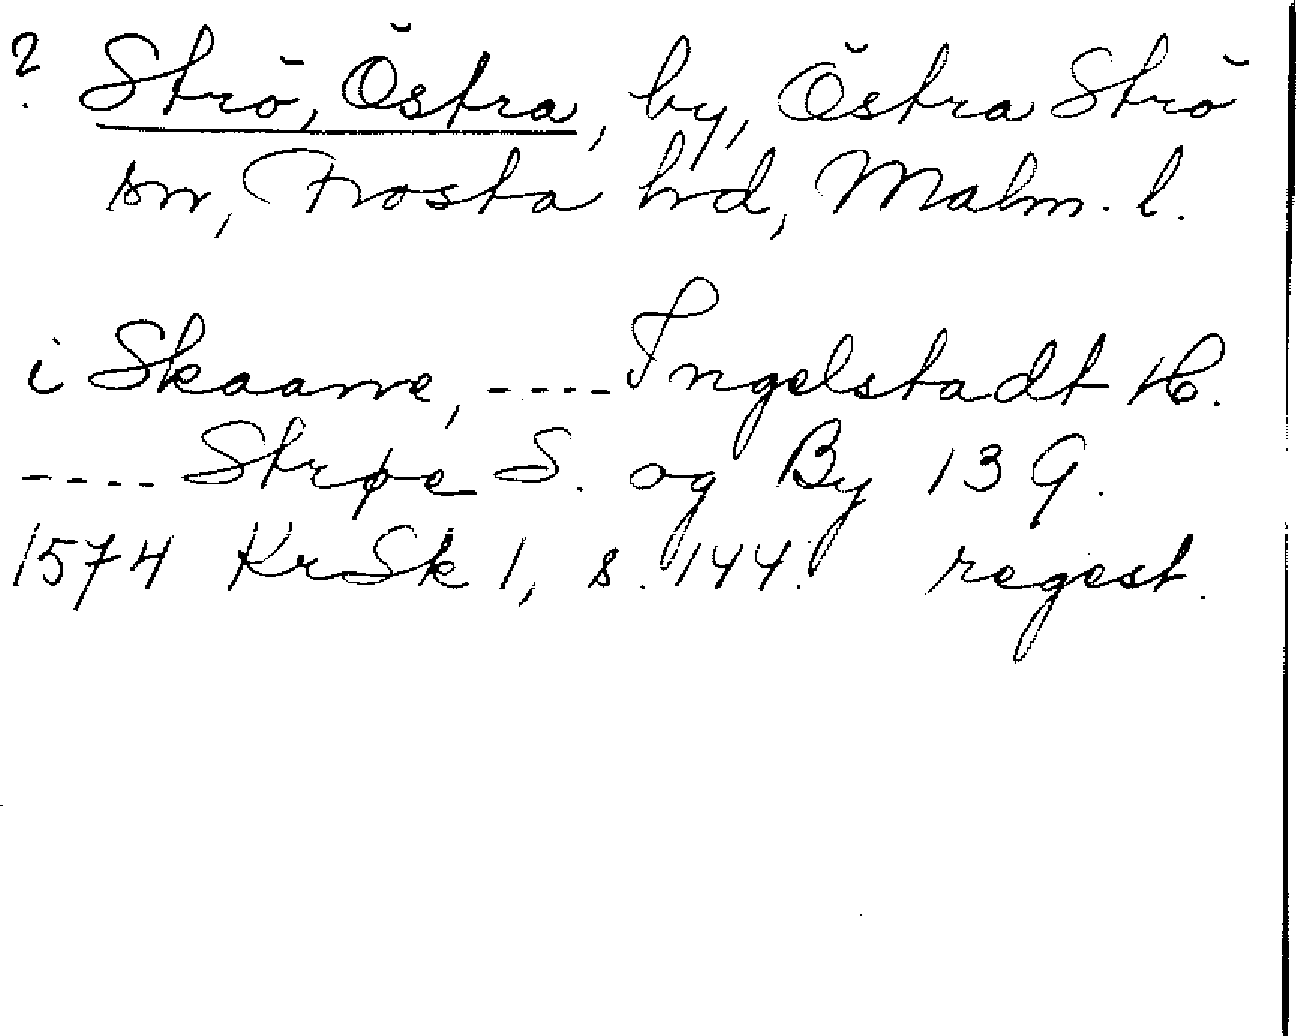 ? Strö, Östra, by, Östra Strö
sn, Frosta hd, Malm. l.
i Skaane, ---- Ingelstadt H.
---- Strøe S. og By 13 G.
1574 KrSk 1, s. 144. regest.